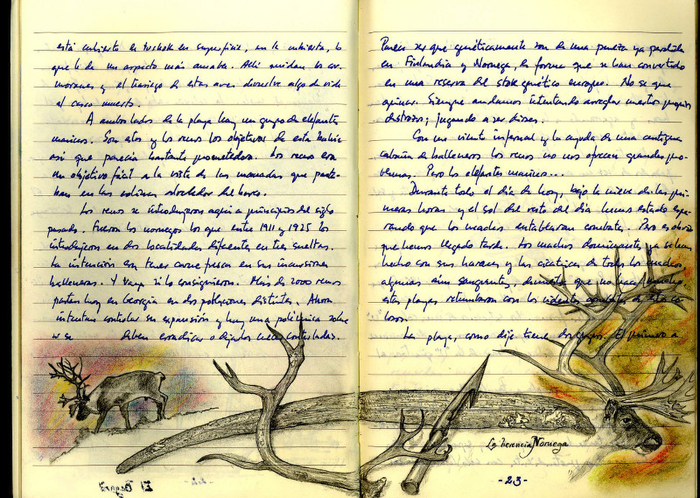 está cubierta de tussok en superficie, en la cubierta, lo
que le da un aspecto más amable. Allí anidan los cor-
moranes y el trasiego de estas aves devuelve algo de vida
al casco muerto.
A ambos lados de la playa hay un grupo de elefantes
marinos. Son ellos y los renos los objetivos de esta bahía
así que parecía bastante prometedora. Los renos son
un objetivo fácil a la vista de las manadas que pasta-
ban en las colinas alrededor del barco.
Los renos se introdujeron aquí a principios del siglo
pasado. Fueron los noruegos los que entre 1911 y 1925 los
introdujeron en dos localidades diferentes en tres sueltas.
La intención era tener carne fresca en sus incursiones
balleneras. Y vaya si lo consiguieron. Más de 2000 renos
pastan hoy en Georgia en dos poblaciones distintas. Ahora
intentan controlar su expansión y hay una polémica sobre
si se deben erradicar o dejarlos controladas.
Parece ser que genéticamente son de una pureza ya perdida
en Finlandia y Noruega, de forma que se han convertido
en una reserva del stock genético europeo. No se que
opinar. Siempre andamos intentando arreglar nuestros propios
destrozos; jugando a ser dioses.
Con un viento infernal y la ayuda de una antigua
cabaña de balleneros los renos no nos ofrecen grandes pro-
blemas. Pero los elefantes marinos...
Durante todo el día de hoy, bajo la nieve de las pri-
meras horas y el sol del resto del día hemos estado espe-
rando que los machos entablaran combate. Pero es obvio
que hemos llegado tarde. Los machos dominantes ya se han
hecho con sus harenes y las cicatrices de todos los machos,
algunas aún sangrantes, demuestra que no hace mucho
estas playas retumbaron con los violentos
La playa, como dije tiene dos grupos. El primero a
La herencia Noruega
- 23 -